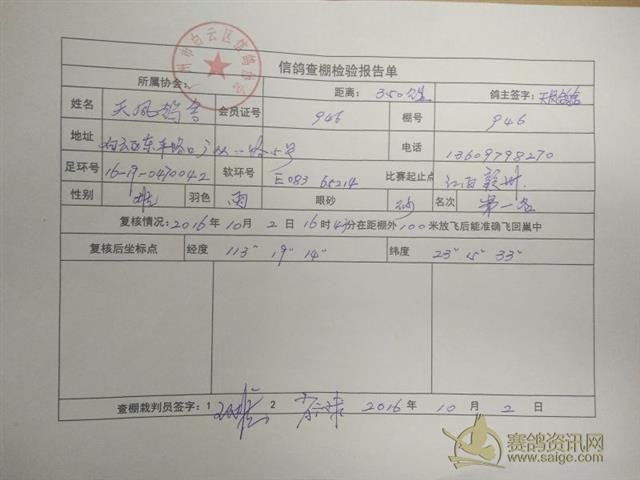 广州市白云区信鸽协会
信鸽查棚检验报告单
所属协会: 距离: 350公里 鸽主签字: 天凤鸽舍
姓名 天凤鸽舍 会员证号 946 棚号 946
地址 电话 13609798270
足环号 16-19-0470042 软环号 E083 65214 比赛起止点 江西赣州
性别 雄 羽色 雨 眼砂 砂 名次 第一名
复核情况: 2016年10月2日16时 分在距棚外100米放飞后能准确飞回巢中
复核后坐标点 经度 113° 19" 14" 纬度 23° 15" 33"
查棚裁判员签字: 1 2 2016年10月2日
赛鸽资讯网
www.saige.com